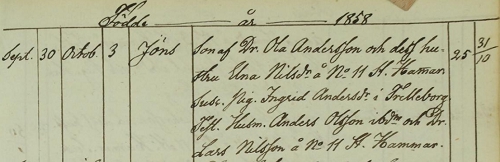 Födde år 1858
Sept. 30 Octob. 3 Jöns Son af Dr. Ola Andersson och dess hu- 25 31/10
stru Elna Nilsdr å No 11 St. Hamar.
Susc. Pig. Ingrid Andersdr i Trelleborg.
Test. Husm. Anders Olsson ibdm och Dr.
Lars Nilsson å No 11 St. Hammar.